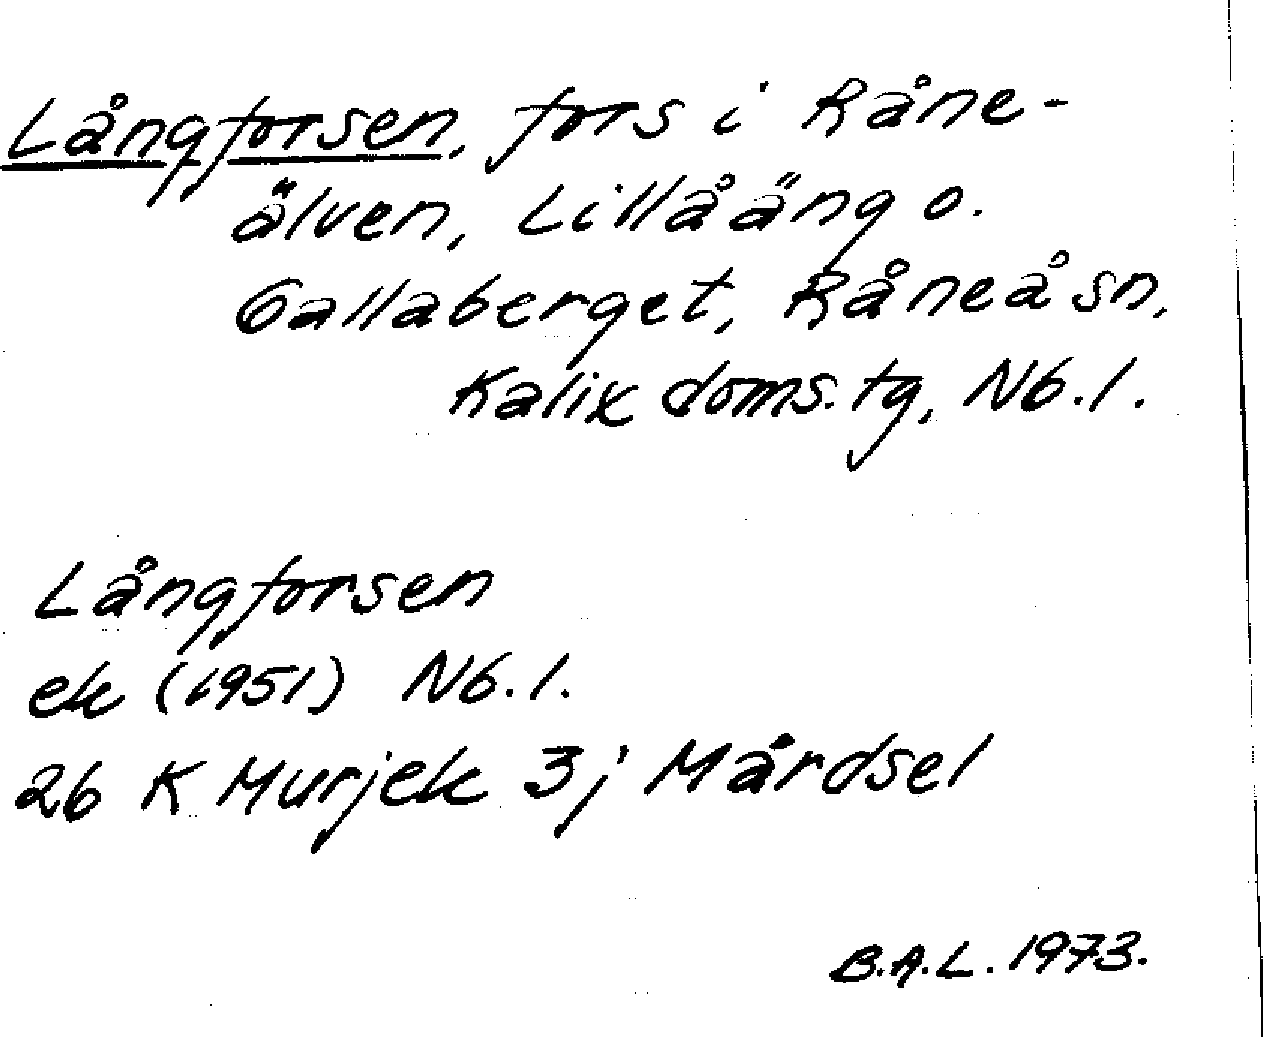 Långforsen, fors i Råne-
älven, Lillåäng o.
Gallaberget, Råneå sn,
Kalix doms. tg, Nb. l.
Långforsen
ek (1951) Nb. l.
26 K Murjek 3j Mårdsel
B.A.L. 1973.